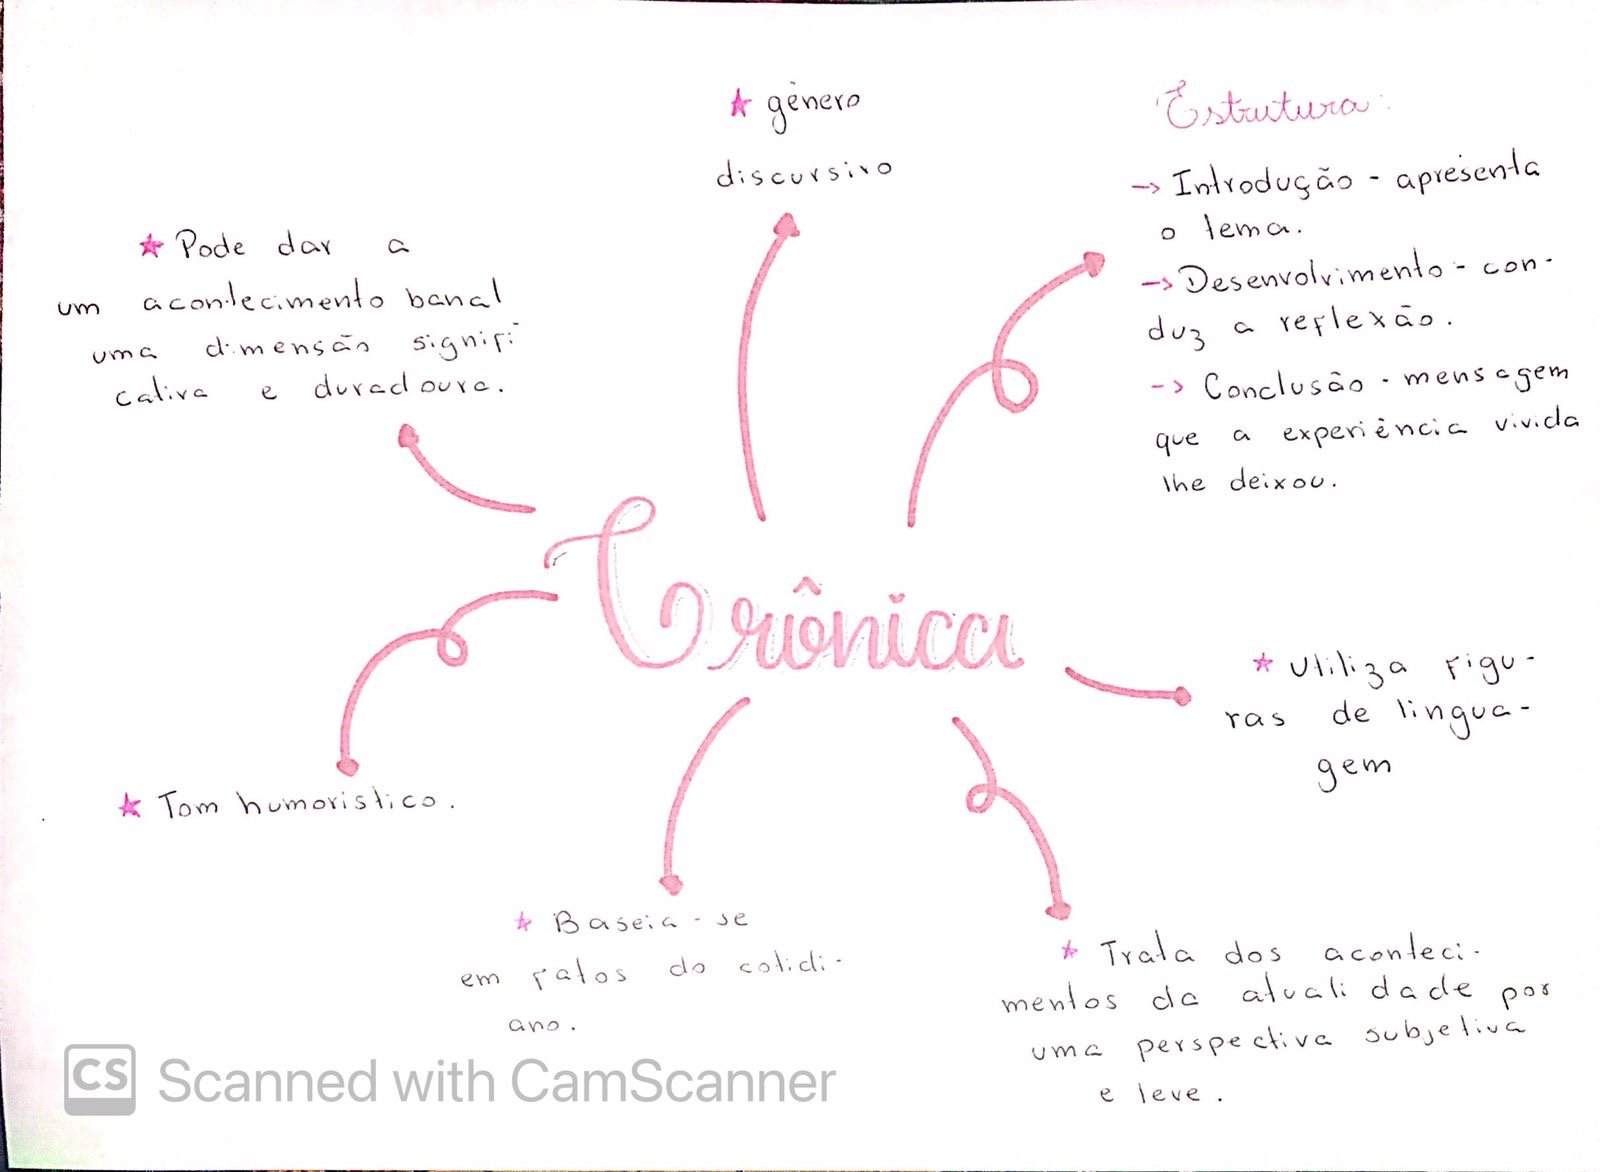 ★ gênero
discursivo
Estrutura:
-> Introdução - apresenta
o tema.
-> Desenvolvimento - con-
duz a reflexão.
-> Conclusão - mensagem
que a experiência vivida
lhe deixou.
★ Pode dar a
um acontecimento banal
uma dimensão signifi-
cativa e duradoura.
Crônica
★ Utiliza figu-
ras de lingua-
gem
★ Tom humoristico.
★ Baseia-se
em fatos do cotidi-
ano.
★ Trata dos aconteci-
mentos da atualidade por
uma perspectiva subjetiva
e leve.
CS Scanned with CamScanner